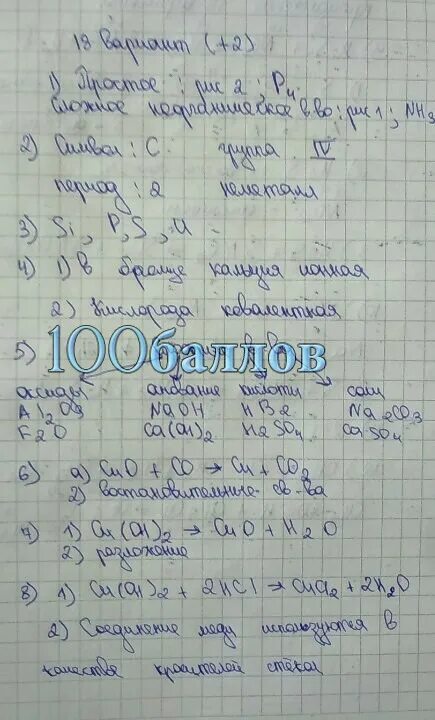 18 вариант (+2)
1) Простое : рис 2 ; P4
сложное неорганическое в-во : рис 1 ; NH3
2) Символ : C группа IV
период : 2 неметалл
3) Si, P, S, Cl
4) 1) в бромиде кальция ионная
2) Кислорода ковалентная
100баллов
5)
оксиды основание кислоты соли
Al2O3 NaOH HBr Na2CO3
F2O Ca(OH)2 H2SO4 CaSO4
6) а) CuO + CO → Cu + CO2
2) востановительные св-ва
7) 1) Cu(OH)2 → CuO + H2O
2) разложение
8) 1) Cu(OH)2 + 2HCl → CuCl2 + 2H2O
2) Соединение меди используются в
качестве красителей стёкол